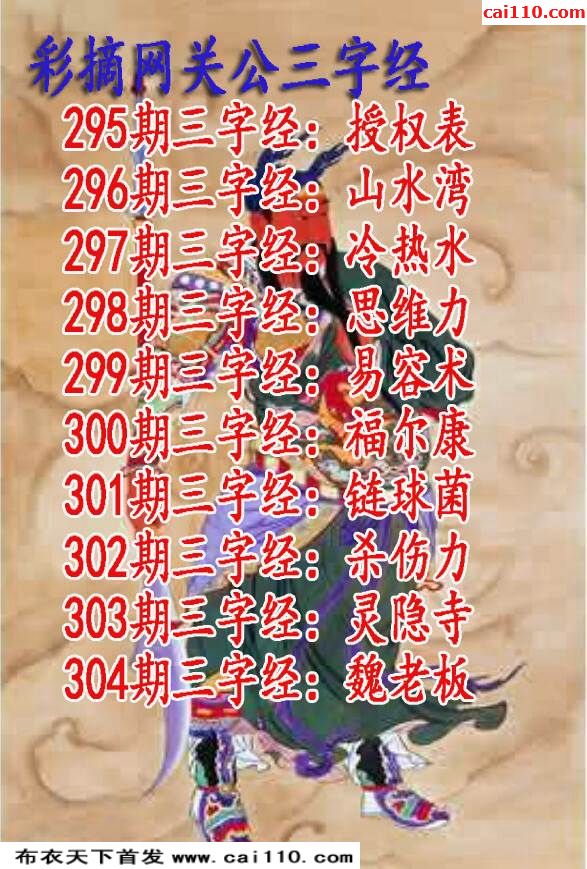 cai110.com
彩摘网关公三字经
295期三字经：授权表
296期三字经：山水湾
297期三字经：冷热水
298期三字经：思维力
299期三字经：易容术
300期三字经：福尔康
301期三字经：链球菌
302期三字经：杀伤力
303期三字经：灵隐寺
304期三字经：魏老板
布衣天下首发 www.cai110.com